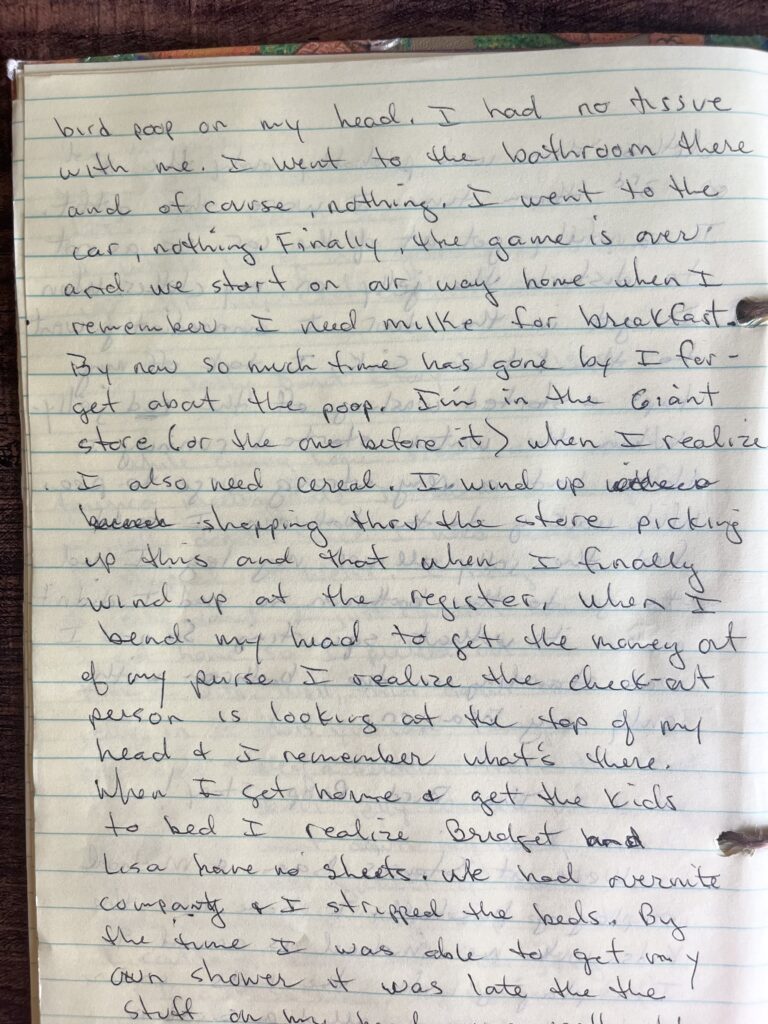 bird poop on my head. I had no tissue
with me. I went to the bathroom there
and of course, nothing. I went to the
car, nothing. Finally, the game is over
and we start on our way home when I
remember I need milke for breakfast.
By now so much time has gone by I for-
get abat the poop. I'm in the Giant
store (or the one before it) when I realize
I also need cereal. I wind up
shopping thru the store picking
up this and that when I finally
wind up at the register. When I
bend my head to get the money out
of my purse I realize the check-out
person is looking at the top of my
head & I remember what's there.
When I get home & get the kids
to bed I realize Bridget and
Lisa have no sheets. We had overnite
company & I stripped the beds. By
the time I was able to get my
own shower it was late the the
stuff on my